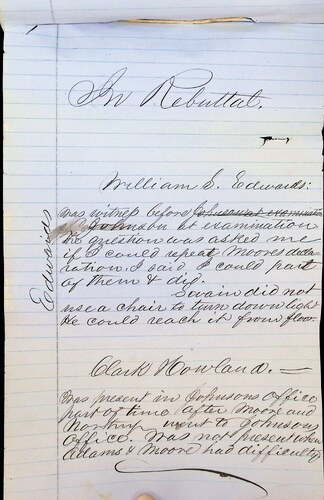 In Rebuttal.
William S. Edwards:
Edwards
was witness before Johnson at examination
Johnson at examination
the question was asked me
if I could repeat Moores decla
ration I said I could part
of them & did.
Swain did not
use a chair to turn down light
He could reach it from floor.
Clark Howland. —
Was present in Johnsons Office
part of time after Moore and
went to Johnsons
Office. Was not present when
Adams & Moore had difficulty